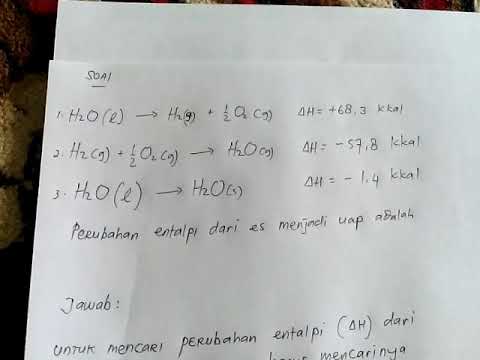 SOAl
1. H2O(l) → H2(g) + 1/2 O2(g) ΔH = +68,3 kkal
2. H2(g) + 1/2 O2(g) → H2O(g) ΔH = -57,8 kkal
3. H2O(l) → H2O(s) ΔH = -1,4 kkal
Perubahan entalpi dari es menjadi uap adalah
Jawab:
untuk mencari perubahan entalpi (ΔH) dari
harus mencarinya